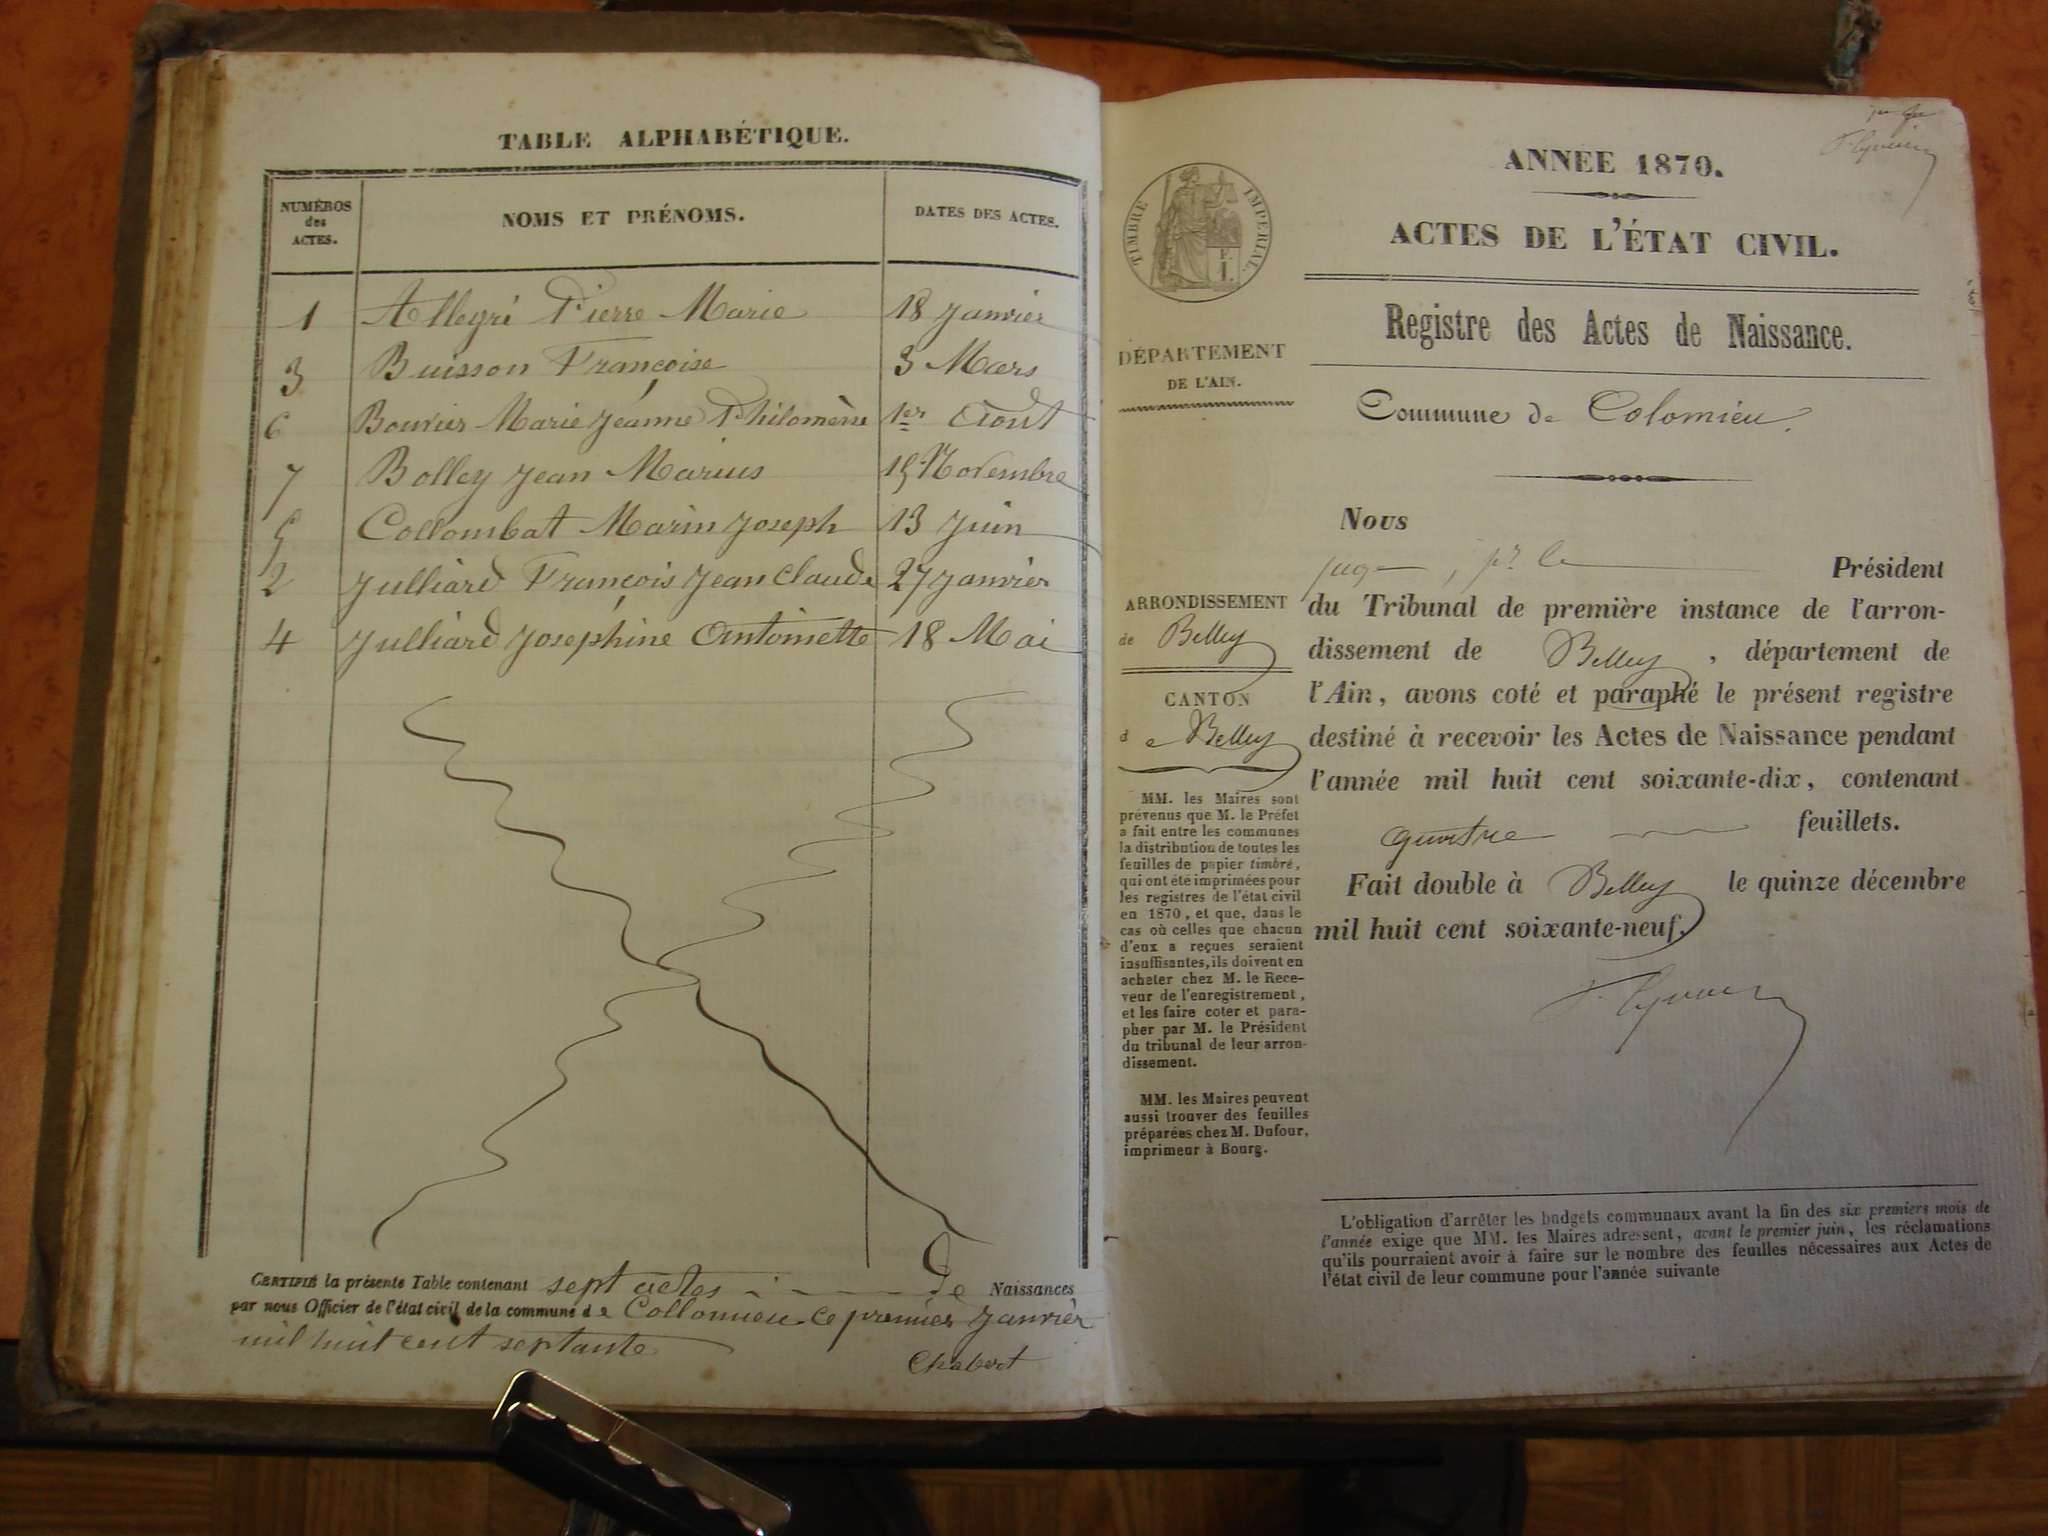 TABLE ALPHABÉTIQUE.
NUMÉROS
des
ACTES.
NOMS ET PRÉNOMS.
DATES DES ACTES.
1 Allegri Pierre Marie 18 Janvier
3 Buisson Françoise 3 Mars
6 Bouvier Marie Jeanne Philomène 1er Août
7 Bolley Jean Marius 15 Novembre
5 Collombat Marin Joseph 13 Juin
2 Julliard François Jean Claude 27 Janvier
4 Julliard Joséphine Antoinette 18 Mai
CERTIFIÉ la présente Table contenant sept actes de Naissances
par nous Officier de l'état civil de la commune de Collomieu ce premier Janvier
mil huit cent septante
Chabert
TIMBRE IMPÉRIAL.
F.
1.
DÉPARTEMENT
DE L'AIN.
ARRONDISSEMENT
de Belley
CANTON
de Belley
MM. les Maires sont
prévenus que M. le Préfet
a fait entre les communes
la distribution de toutes les
feuilles de papier timbré,
qui ont été imprimées pour
les registres de l'état civil
en 1870, et que, dans le
cas où celles que chacun
d'eux a reçues seraient
insuffisantes, ils doivent en
acheter chez M. le Rece-
veur de l'enregistrement,
et les faire coter et para-
pher par M. le Président
du tribunal de leur arron-
dissement.
MM. les Maires peuvent
aussi trouver des feuilles
préparées chez M. Dufour,
imprimeur à Bourg.
ANNÉE 1870.
ACTES DE L'ÉTAT CIVIL.
Registre des Actes de Naissance.
Commune de Colomieu.
Nous
juge, pr le Président
du Tribunal de première instance de l'arron-
dissement de Belley, département de
l'Ain, avons coté et paraphé le présent registre
destiné à recevoir les Actes de Naissance pendant
l'année mil huit cent soixante-dix, contenant
quatre feuillets.
Fait double à Belley le quinze décembre
mil huit cent soixante-neuf.
L'obligation d'arrêter les budgets communaux avant la fin des six premiers mois de
l'année exige que MM. les Maires adressent, avant le premier juin, les réclamations
qu'ils pourraient avoir à faire sur le nombre des feuilles nécessaires aux Actes de
l'état civil de leur commune pour l'année suivante